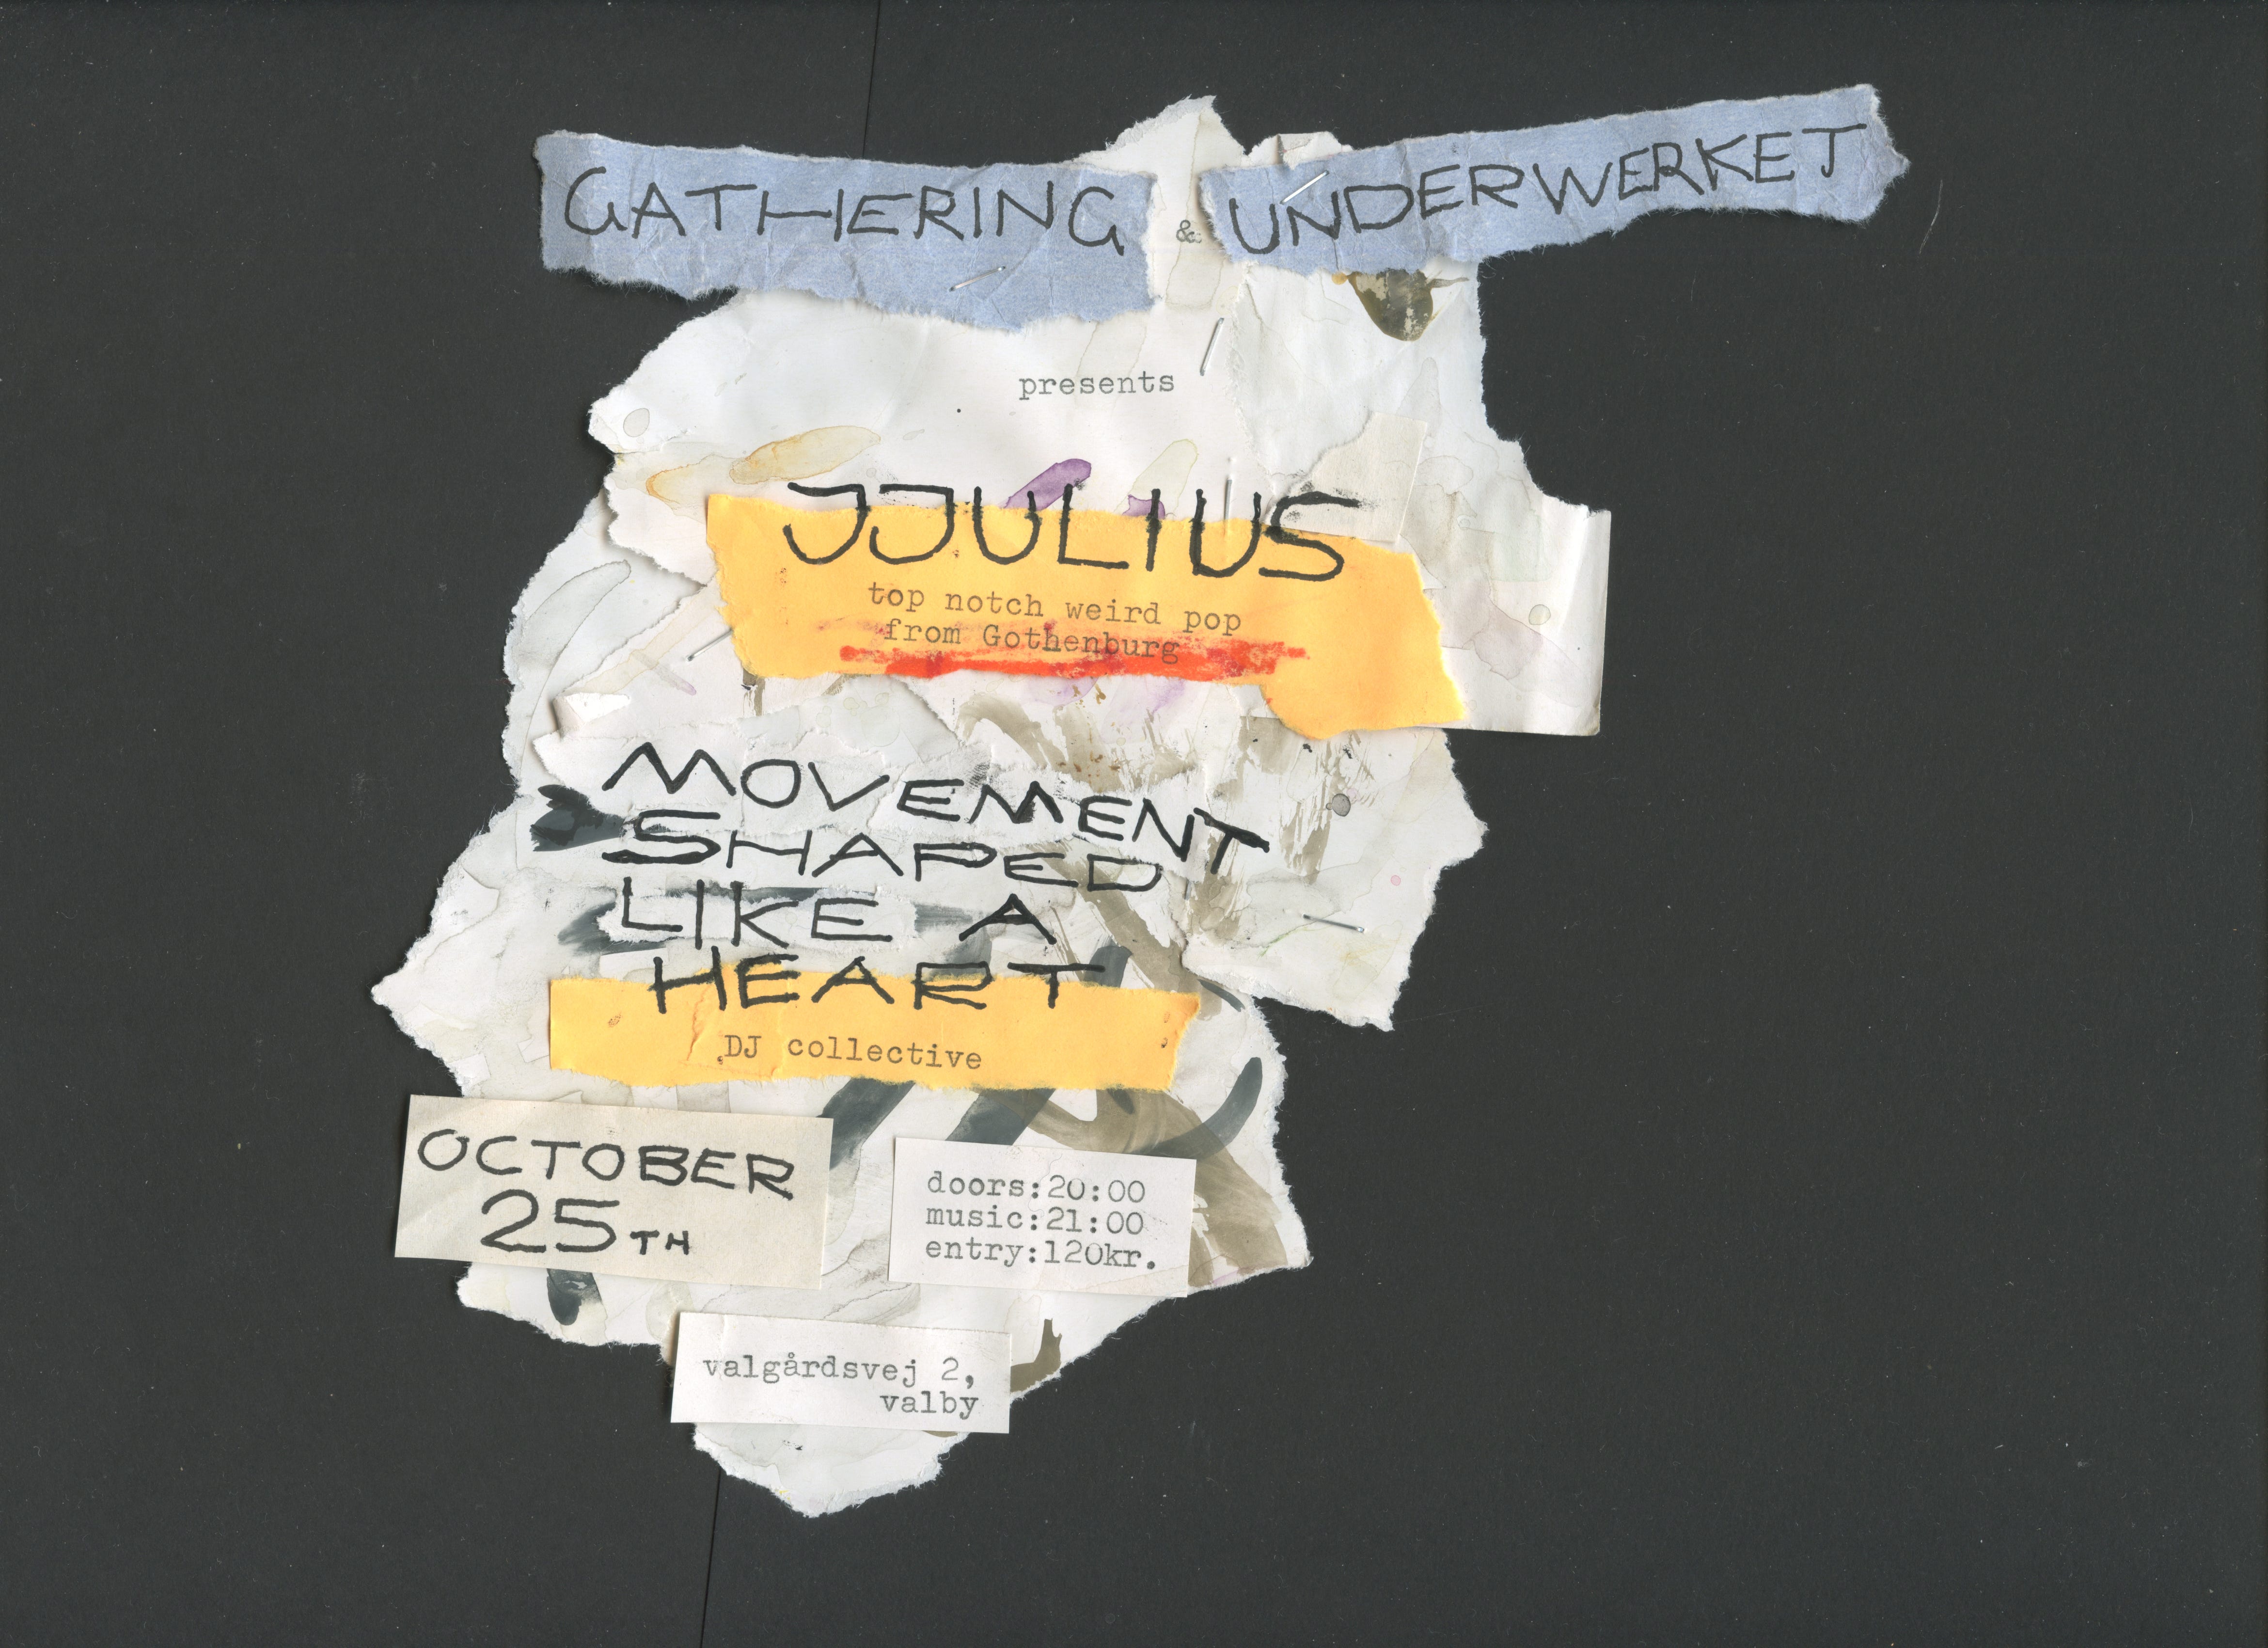 GATHERING & UNDERWERKET
presents
JJULIUS
top notch weird pop
from Gothenburg
MOVEMENT
SHAPED
LIKE A
HEART
DJ collective
OCTOBER
25TH
doors:20:00
music:21:00
entry:120kr.
valgårdsvej 2,
valby